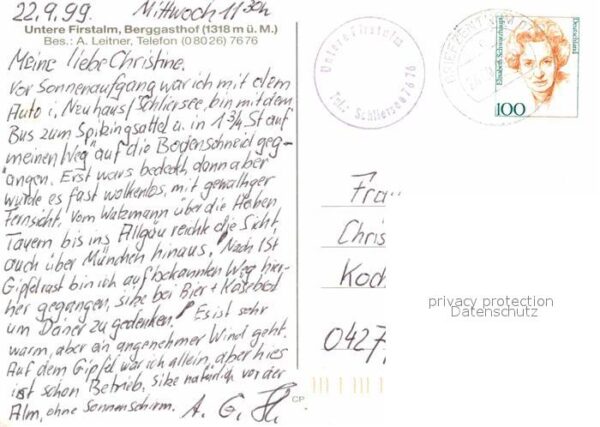 22.9.99 Mittwoch 11 30h
Untere Firstalm, Berggasthof (1318 m ü. M.)
Bes.: A. Leitner, Telefon (08026) 7676
Meine liebe Christine.
Vor Sonnenaufgang war ich mit dem
Auto i, Neuhaus/Schliersee, bin mit dem
Bus zum Spitzingsattel u. in 1 3/4 St auf
"meinen Weg" auf die Bodenschneid geg-
angen. Erst wars bedeckt, dann aber
wurde es fast wolkenlos mit gewaltiger
Fernsicht. Vom Watzmann über die Hohen
Tauern bis ins Allgäu reichte die Sicht,
auch über München hinaus. Nach 1 St
Gipfelrast bin ich auf bekannten Weg hier-
her gegangen, sitze bei Bier + Käsebrot
um Daner zu gedenken. Es ist sehr
warm, aber ein angenehmer Wind geht.
Auf dem Gipfel war ich allein, aber hier
ist schon Betrieb. Sitze natürlich vor der
Alm, ohne Sonnenschirm. A. G.
CP
Untere Firstalm
Tel. Schliersee 7676
BRIEFZENTRUM
Deutschland
Elisabeth Schwarzhaupt
100
Fra
Chris
Koch
0427
privacy protection
Datenschutz